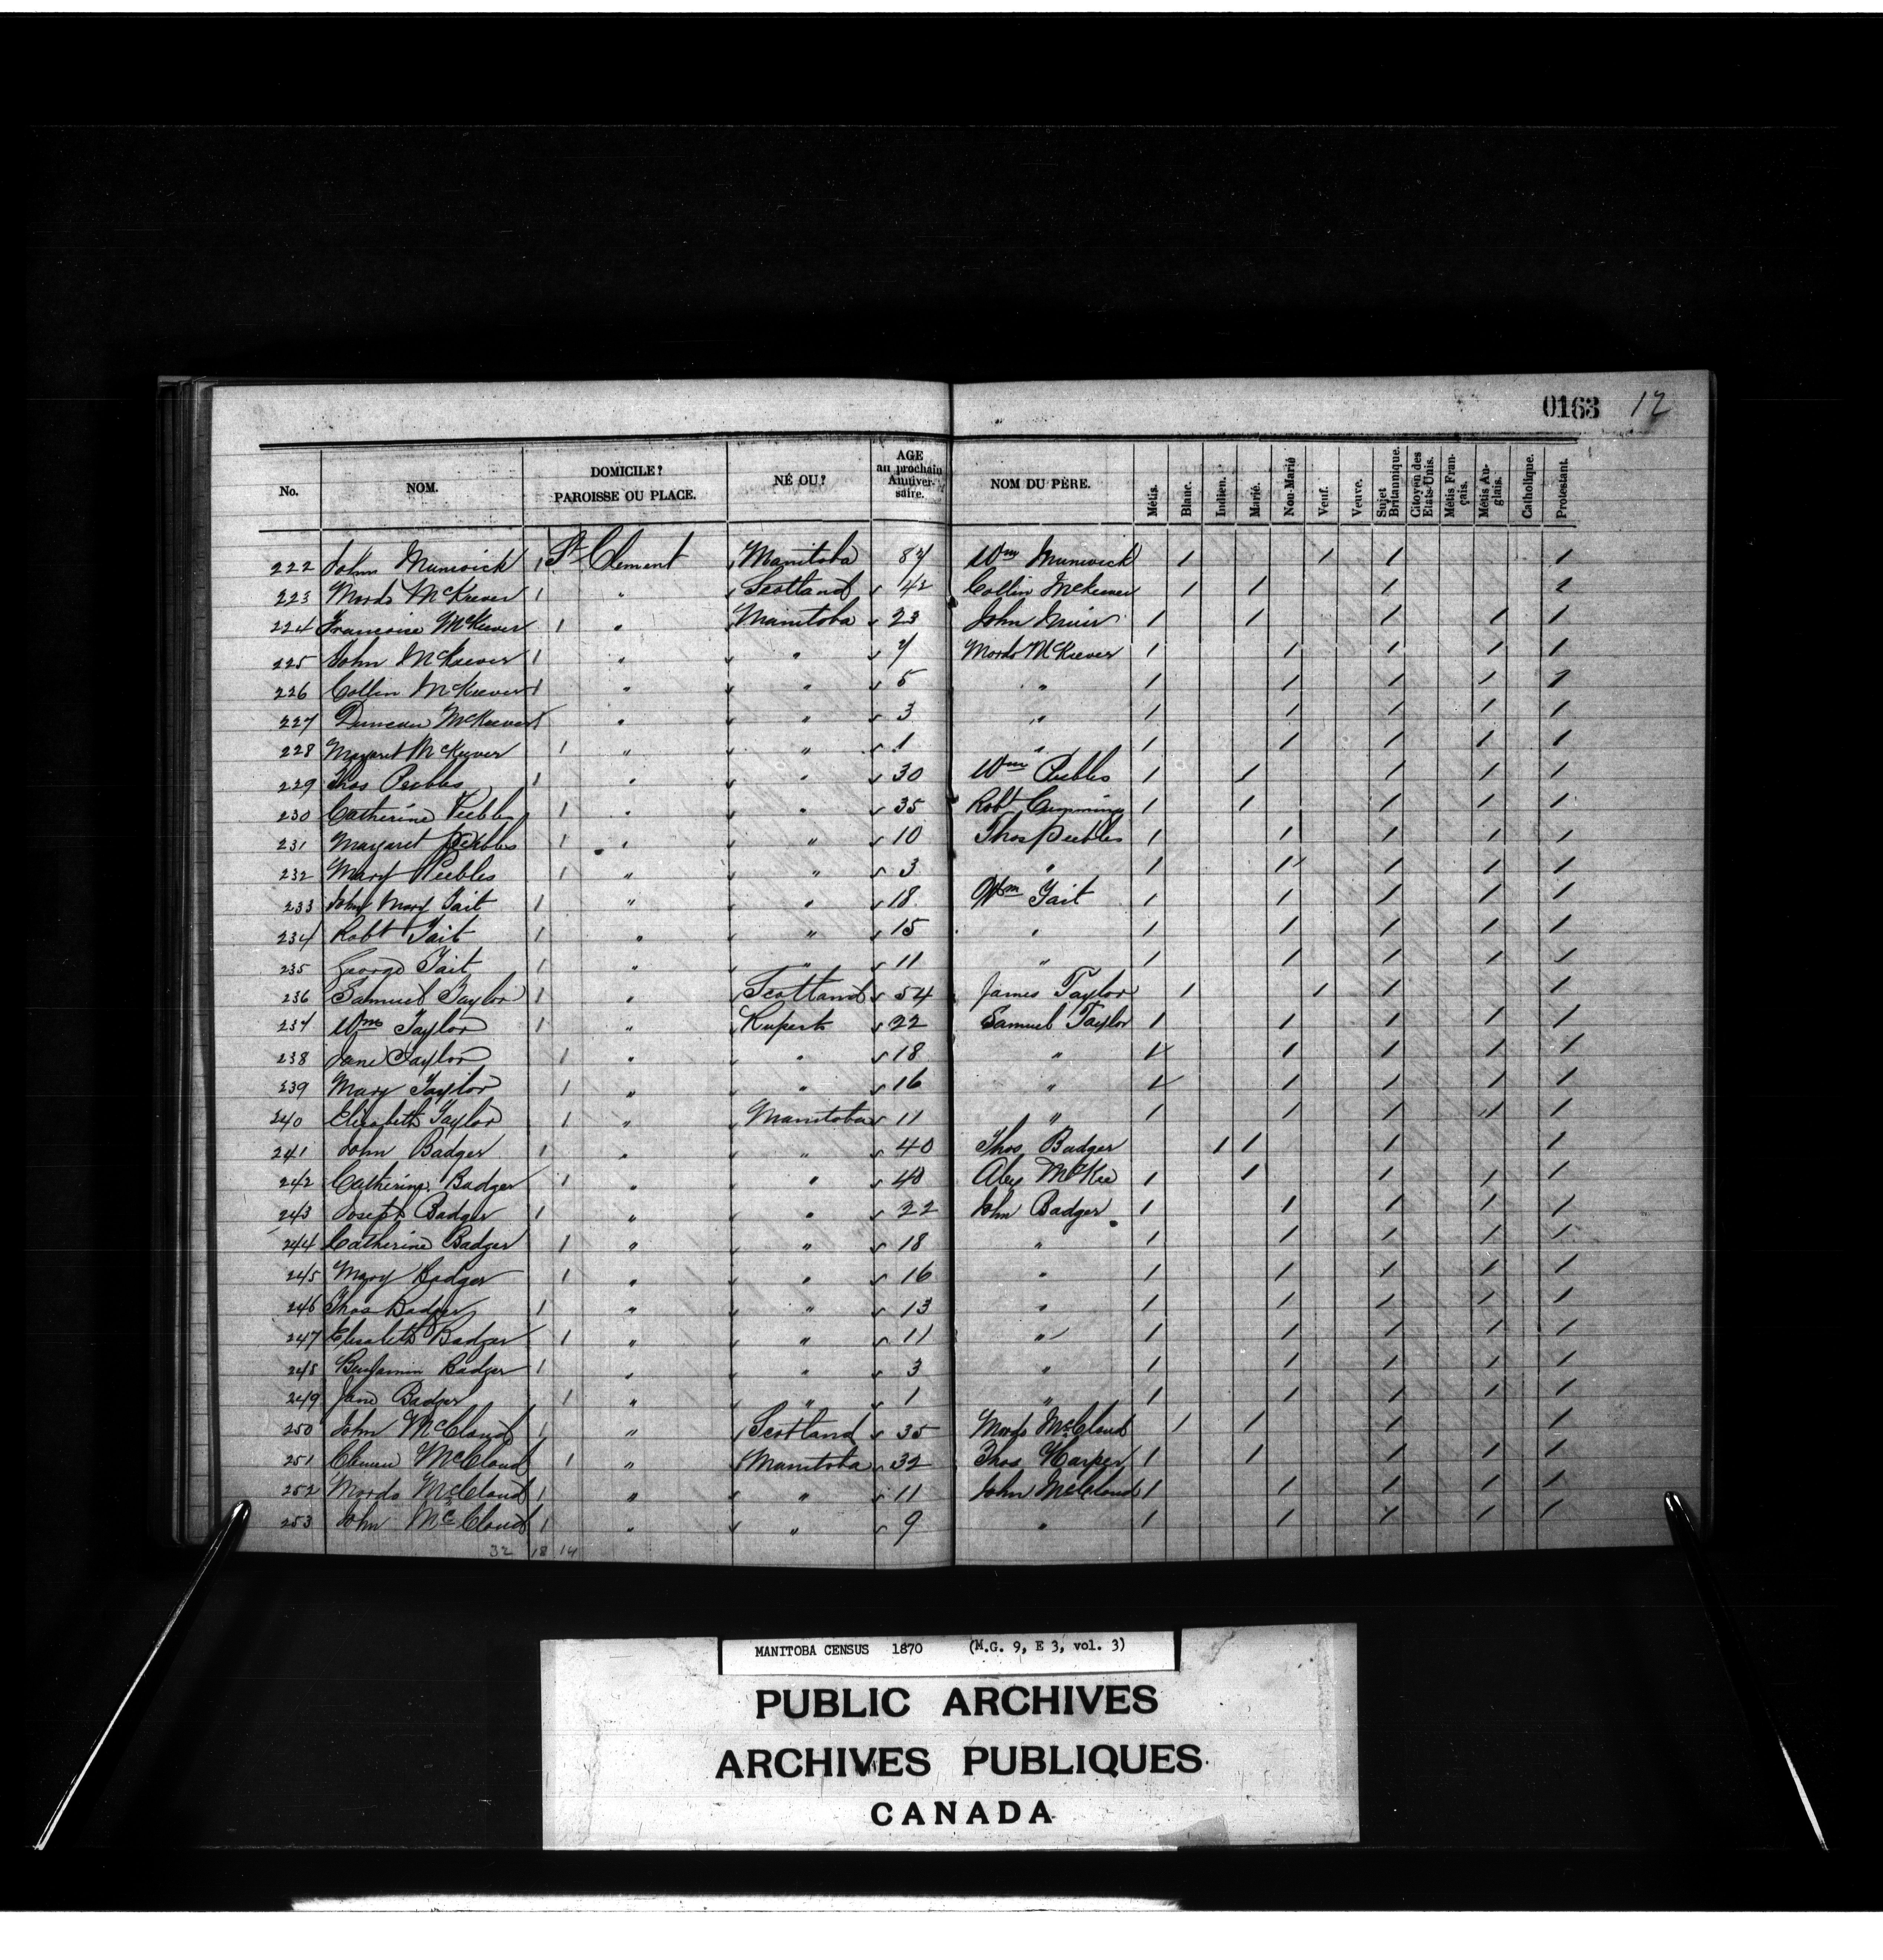 0163 12
No. NOM. DOMICILE? PAROISSE OU PLACE. NÉ OU? AGE au prochain Anniversaire. NOM DU PÈRE. Métis. Blanc. Indien. Marié. Non-Marié Veuf. Veuve. Sujet Britannique. Citoyen des Etats-Unis. Métis Français. Métis Anglais. Catholique. Protestant.
222 John Munwick 1 St Clement Manitoba 87 Wm Munwick 1 1 1 1
223 Mordo McKeever 1 " Scotland 42 Collin McKeever 1 1 1 1
224 Francoise McKeever 1 " Manitoba 23 John 1 1 1 1 1
225 John McKeever 1 " " 7 Mordo McKeever 1 1 1 1 1
226 Collin McKeever 1 " " 5 " 1 1 1 1 1
227 Duncan McKeever 1 " " 3 " 1 1 1 1 1
228 Magaret McKeever 1 " " 1 " 1 1 1 1 1
229 Thos Peebles 1 " " 30 Wm Peebles 1 1 1 1 1
230 Catherine Peebles 1 " " 35 Robt Cumming 1 1 1 1 1
231 Margaret Peebles 1 " " 10 Thos Peebles 1 1 1 1 1
232 Mary Peebles 1 " " 3 " 1 1 1 1 1
233 John Mary Tait 1 " " 18 Wm Tait 1 1 1 1 1
234 Robt Tait 1 " " 15 " 1 1 1 1 1
235 George Tait 1 " " 11 " 1 1 1 1 1
236 Samuel Taylor 1 " Scotland 54 James Taylor 1 1 1 1
237 Wm Taylor 1 " Rupert 22 Samuel Taylor 1 1 1 1 1
238 Jane Taylor 1 " " 18 " 1 1 1 1 1
239 Mary Taylor 1 " " 16 " 1 1 1 1 1
240 Elizabeth Taylor 1 " Manitoba 11 " 1 1 1 1 1
241 John Badger 1 " " 40 Thos Badger 1 1 1 1
242 Catherine Badger 1 " " 40 Alex McKee 1 1 1 1 1
243 Joseph Badger 1 " " 22 John Badger 1 1 1 1 1
244 Catherine Badger 1 " " 18 " 1 1 1 1 1
245 Mary Badger 1 " " 16 " 1 1 1 1 1
246 Thos Badger 1 " " 13 " 1 1 1 1 1
247 Elisabeth Badger 1 " " 11 " 1 1 1 1 1
248 Benjamin Badger 1 " " 3 " 1 1 1 1 1
249 Jane Badger 1 " " 1 " 1 1 1 1 1
250 John McCloud 1 " Scotland 35 Mordo McCloud 1 1 1 1
251 McCloud 1 " Manitoba 32 Thos Harper 1 1 1 1 1
252 Mordo McCloud 1 " " 11 John McCloud 1 1 1 1 1
253 John McCloud 1 " " 9 " 1 1 1 1 1
32 18 14
MANITOBA CENSUS 1870 (M.G. 9, E 3, vol. 3)
PUBLIC ARCHIVES
ARCHIVES PUBLIQUES
CANADA